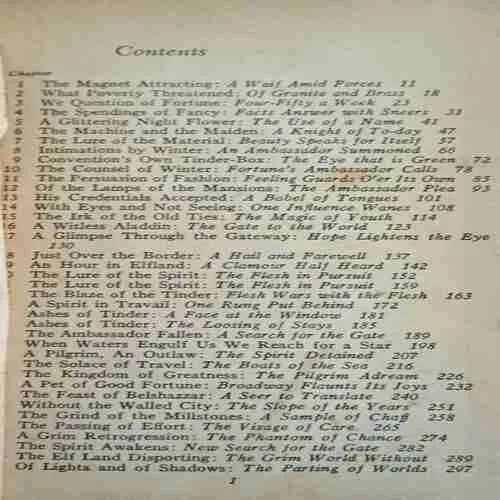 Contents
Chapter
1 The Magnet Attracting: A Waif Amid Forces 11
2 What Poverty Threatened: Of Granite and Brass 18
3 We Question of Fortune: Four-Fifty a Week 23
4 The Spendings of Fancy: Facts Answer with Sneers 31
5 A Glittering Night Flower: The Use of a Name 41
6 The Machine and the Maiden: A Knight of To-day 47
7 The Lure of the Material: Beauty Speaks for Itself 57
8 Intimations by Winter: An Ambassador Summoned 66
9 Convention's Own Tinder-Box: The Eye that is Green 72
10 The Counsel of Winter: Fortune's Ambassador Calls 78
11 The Persuasion of Fashion: Feeling Guards O'er Its Own 85
12 Of the Lamps of the Mansions: The Ambassador Plea 93
13 His Credentials Accepted: A Babel of Tongues 101
14 With Eyes and Not Seeing: One Influence Wanes 108
15 The Irk of the Old Ties: The Magic of Youth 114
16 A Witless Aladdin: The Gate to the World 123
7 A Glimpse Through the Gateway: Hope Lightens the Eye
130
8 Just Over the Border: A Hail and Farewell 137
9 An Hour in Elfland: A Clamour Half Heard 142
0 The Lure of the Spirit: The Flesh in Pursuit 152
The Lure of the Spirit: The Flesh in Pursuit 159
The Blaze of the Tinder: Flesh Wars with the Flesh 163
A Spirit in Travail: One Rung Put Behind 172
Ashes of Tinder: A Face at the Window 181
Ashes of Tinder: The Loosing of Stays 185
The Ambassador Fallen: A Search for the Gate 189
When Waters Engulf Us We Reach for a Star 198
A Pilgrim, An Outlaw: The Spirit Detained 207
The Solace of Travel: The Boats of the Sea 216
The Kingdom of Greatness: The Pilgrim Adream 226
A Pet of Good Fortune: Broadway Flaunts Its Joys 232
The Feast of Belshazzar: A Seer to Translate 240
Without the Walled City: The Slope of the Years 251
The Grind of the Millstones: A Sample of Chaff 258
The Passing of Effort: The Visage of Care 265
A Grim Retrogression: The Phantom of Chance 274
The Spirit Awakens: New Search for the Gate 282
The Elf Land Disporting: The Grim World Without 289
Of Lights and of Shadows: The Parting of Worlds 297
1